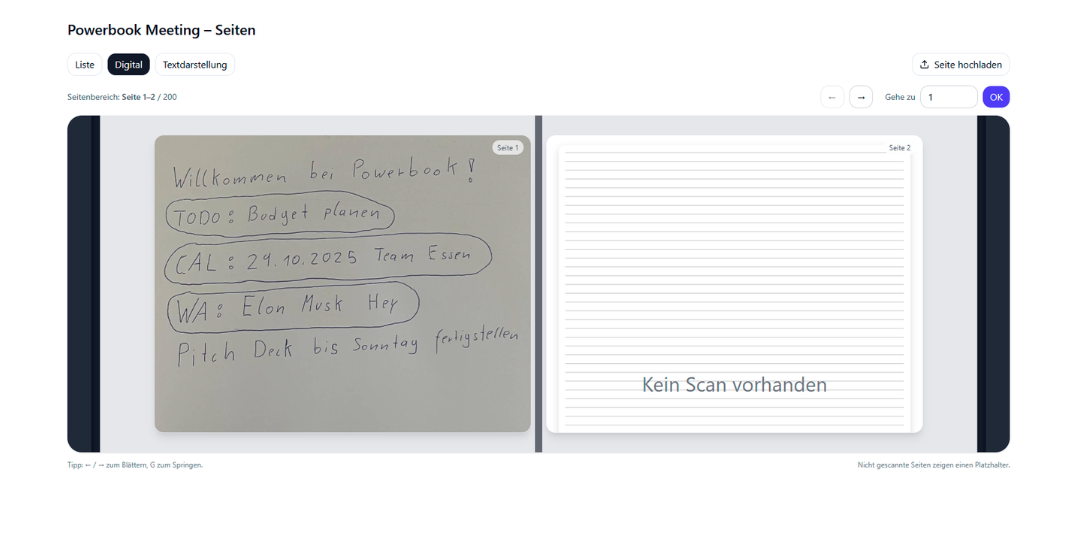 Powerbook Meeting – Seiten
Liste
Digital
Textdarstellung
Seite hochladen
Seitenbereich: Seite 1–2 / 200
←
→
Gehe zu
1
OK
Seite 1
Willkommen bei Powerbook!
TODO: Budget planen
CAL: 29.10.2025 Team Essen
WA: Elon Musk Hey
Pitch Deck bis Sonntag fertigstellen
Seite 2
Kein Scan vorhanden
Tipp: ← / → zum Blättern, G zum Springen.
Nicht gescannte Seiten zeigen einen Platzhalter.